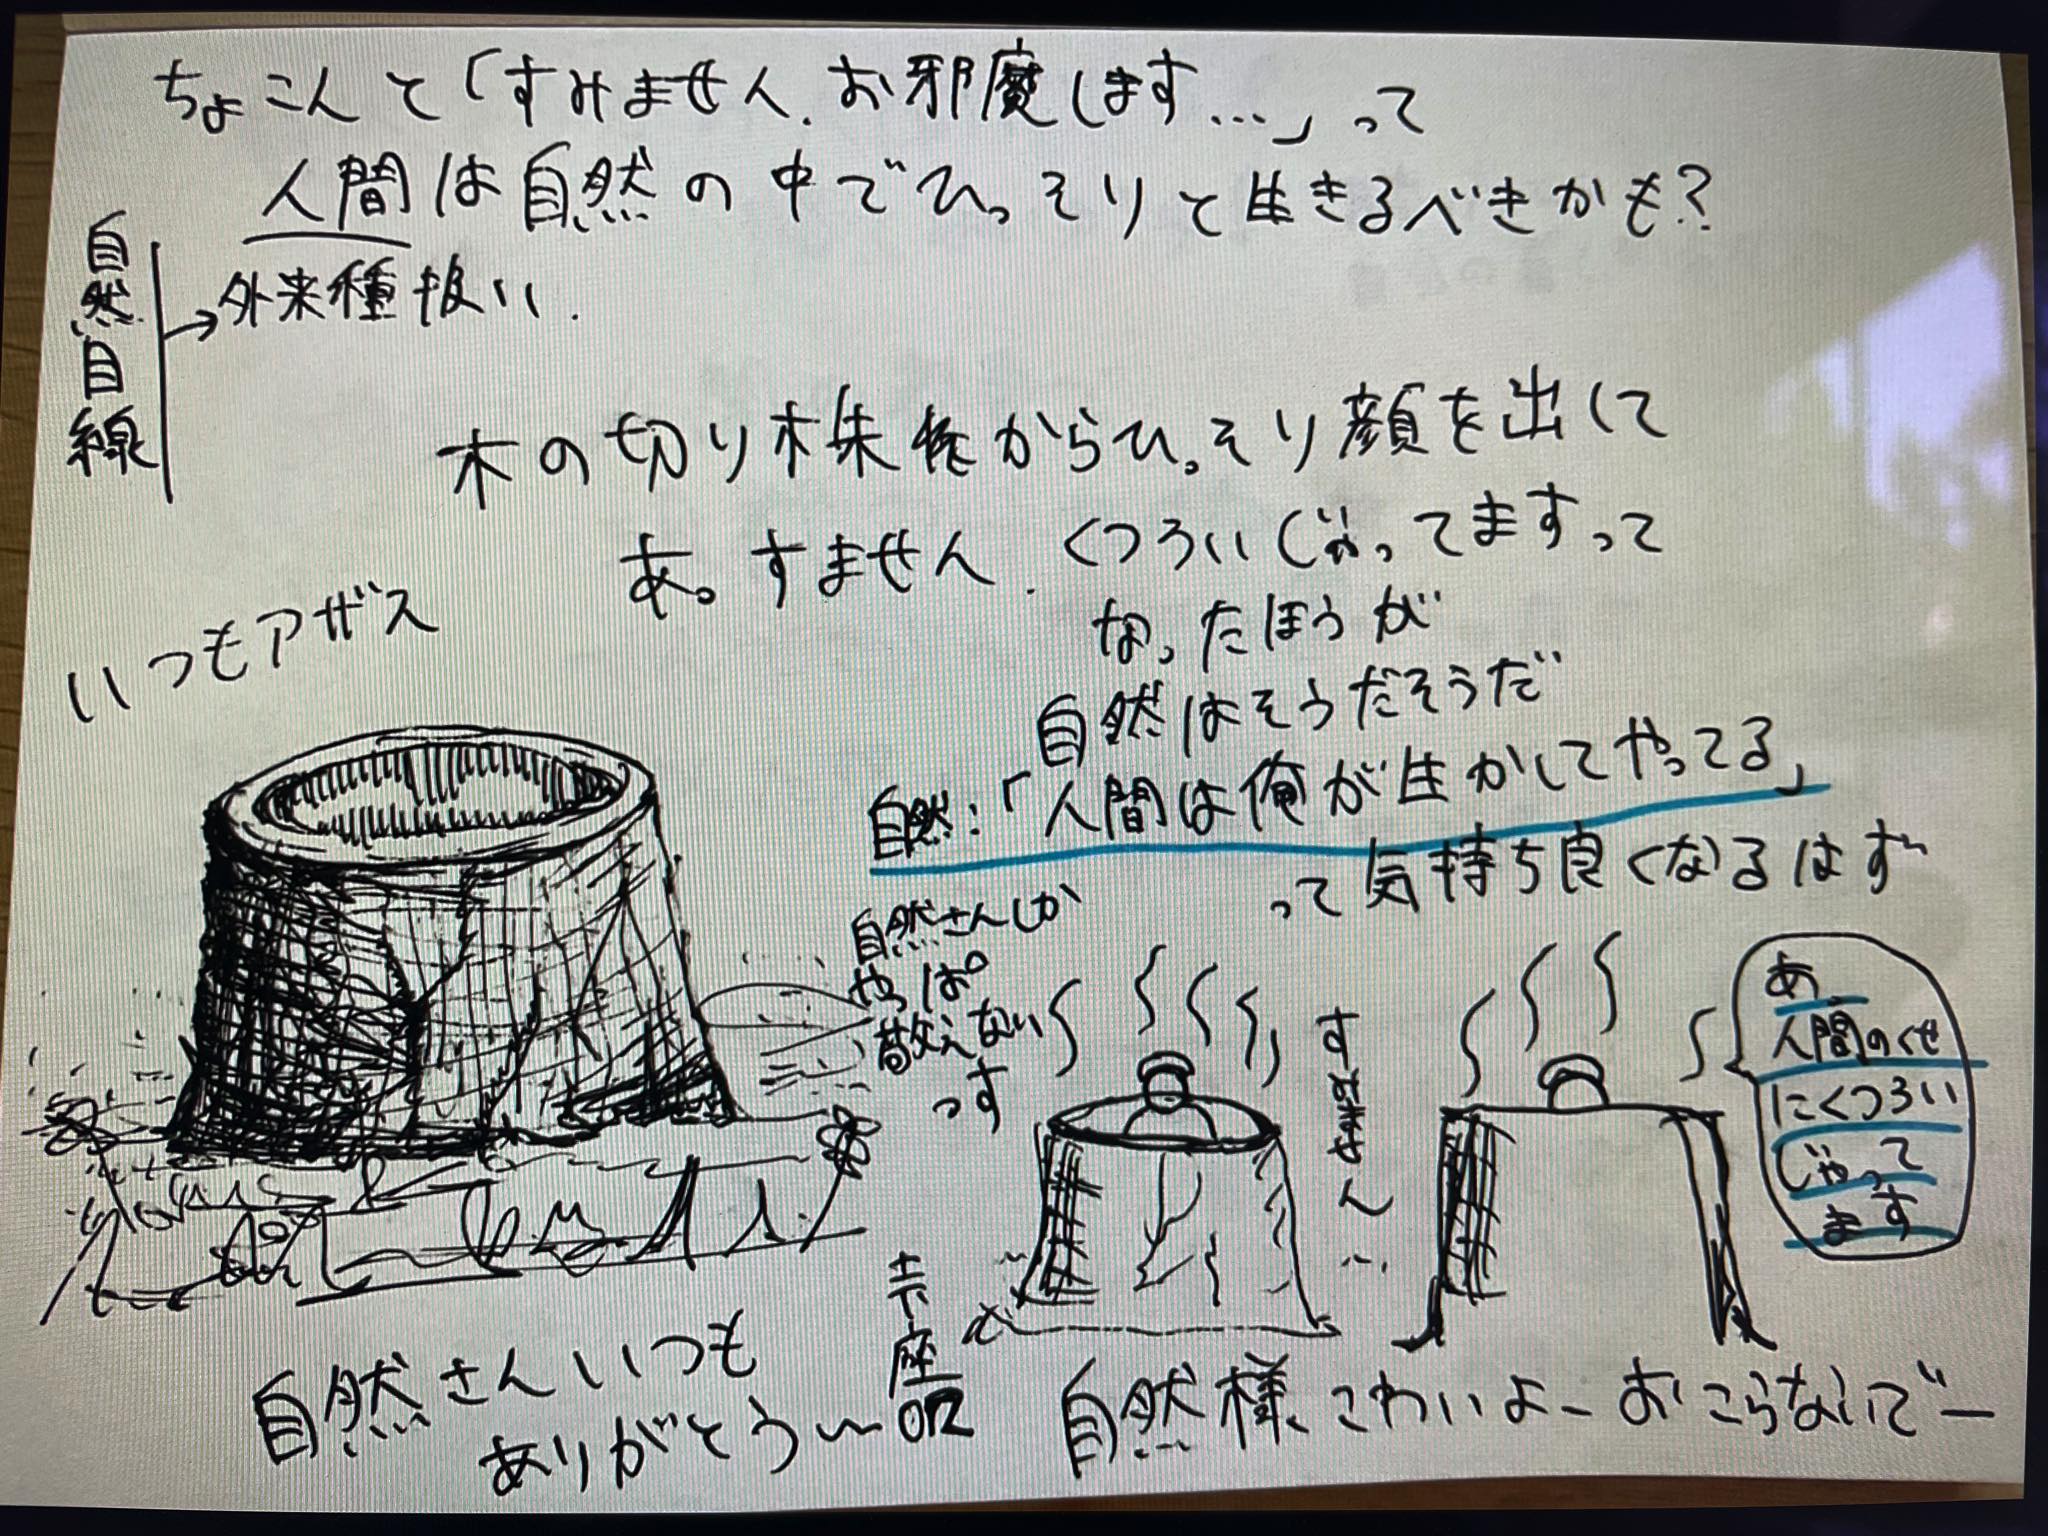 ちょこんと「すみません、お邪魔します…」って
人間は自然の中でひっそりと生きるべきかも?
自然目線
→外来種扱い.
木の切り株からひっそり顔を出して
あ。すません. くつろいじゃってますって
なったほうが
自然はそうだそうだ
自然:「人間は俺が生かしてやってる」
って気持ち良くなるはず
いつもアザス
自然さんしか
やっぱ
敵えない
っす
すみません…
あ
人間のくせ
にくつろい
じゃって
ます
自然さんいつも
ありがとう〜
土下座
OR
自然様こわいよーおこらないでー